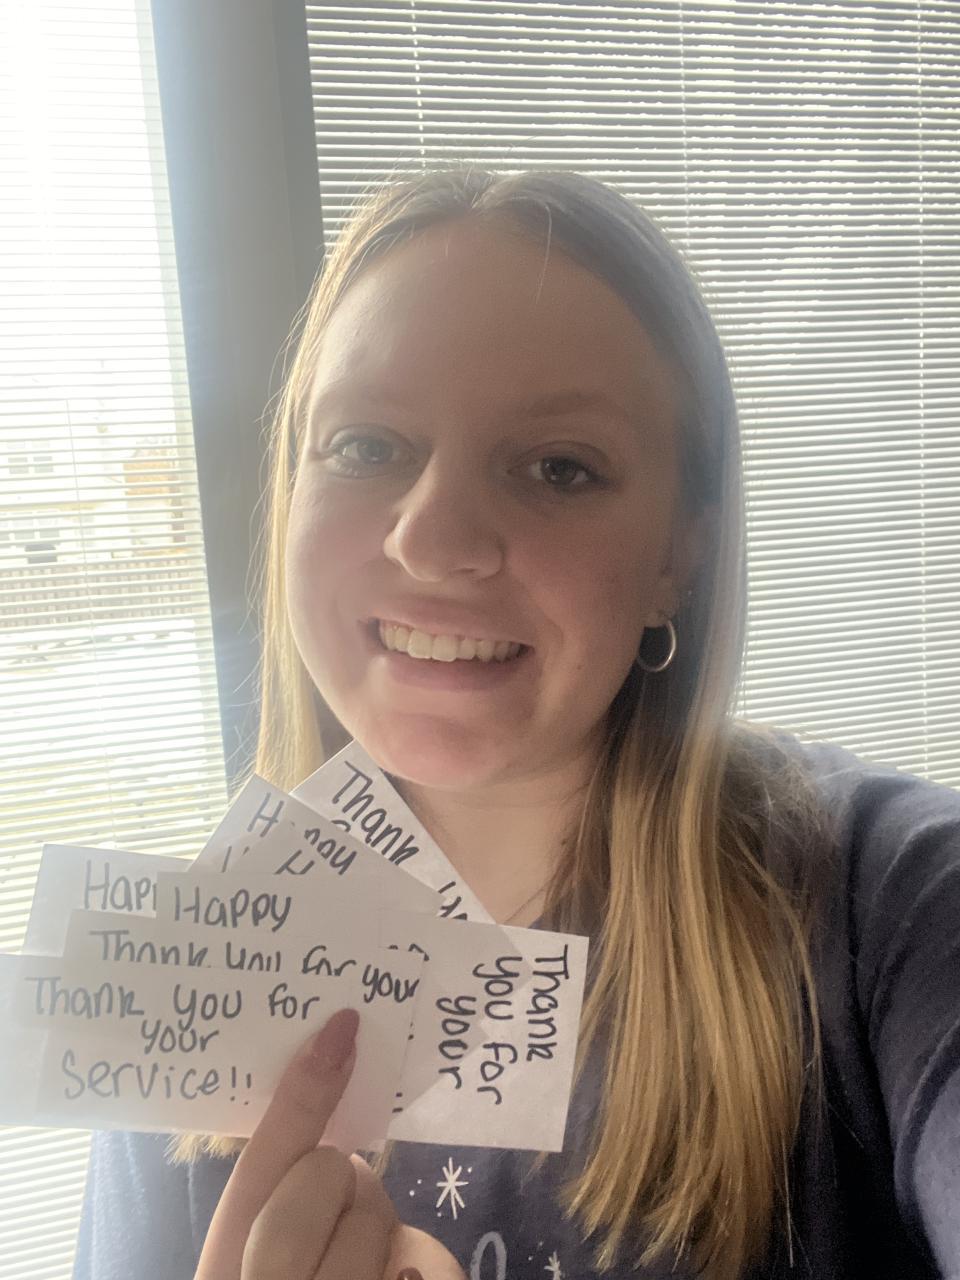 Thank
Happy
H
Hap
Happy
Thank you for your
Thank you for
your
Service!!
Thank
you for
your